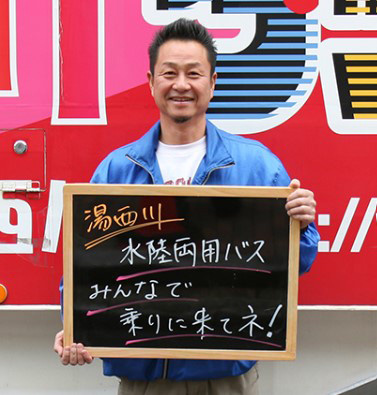 湯西川
水陸両用バス
みんなで
乗りに来てネ!